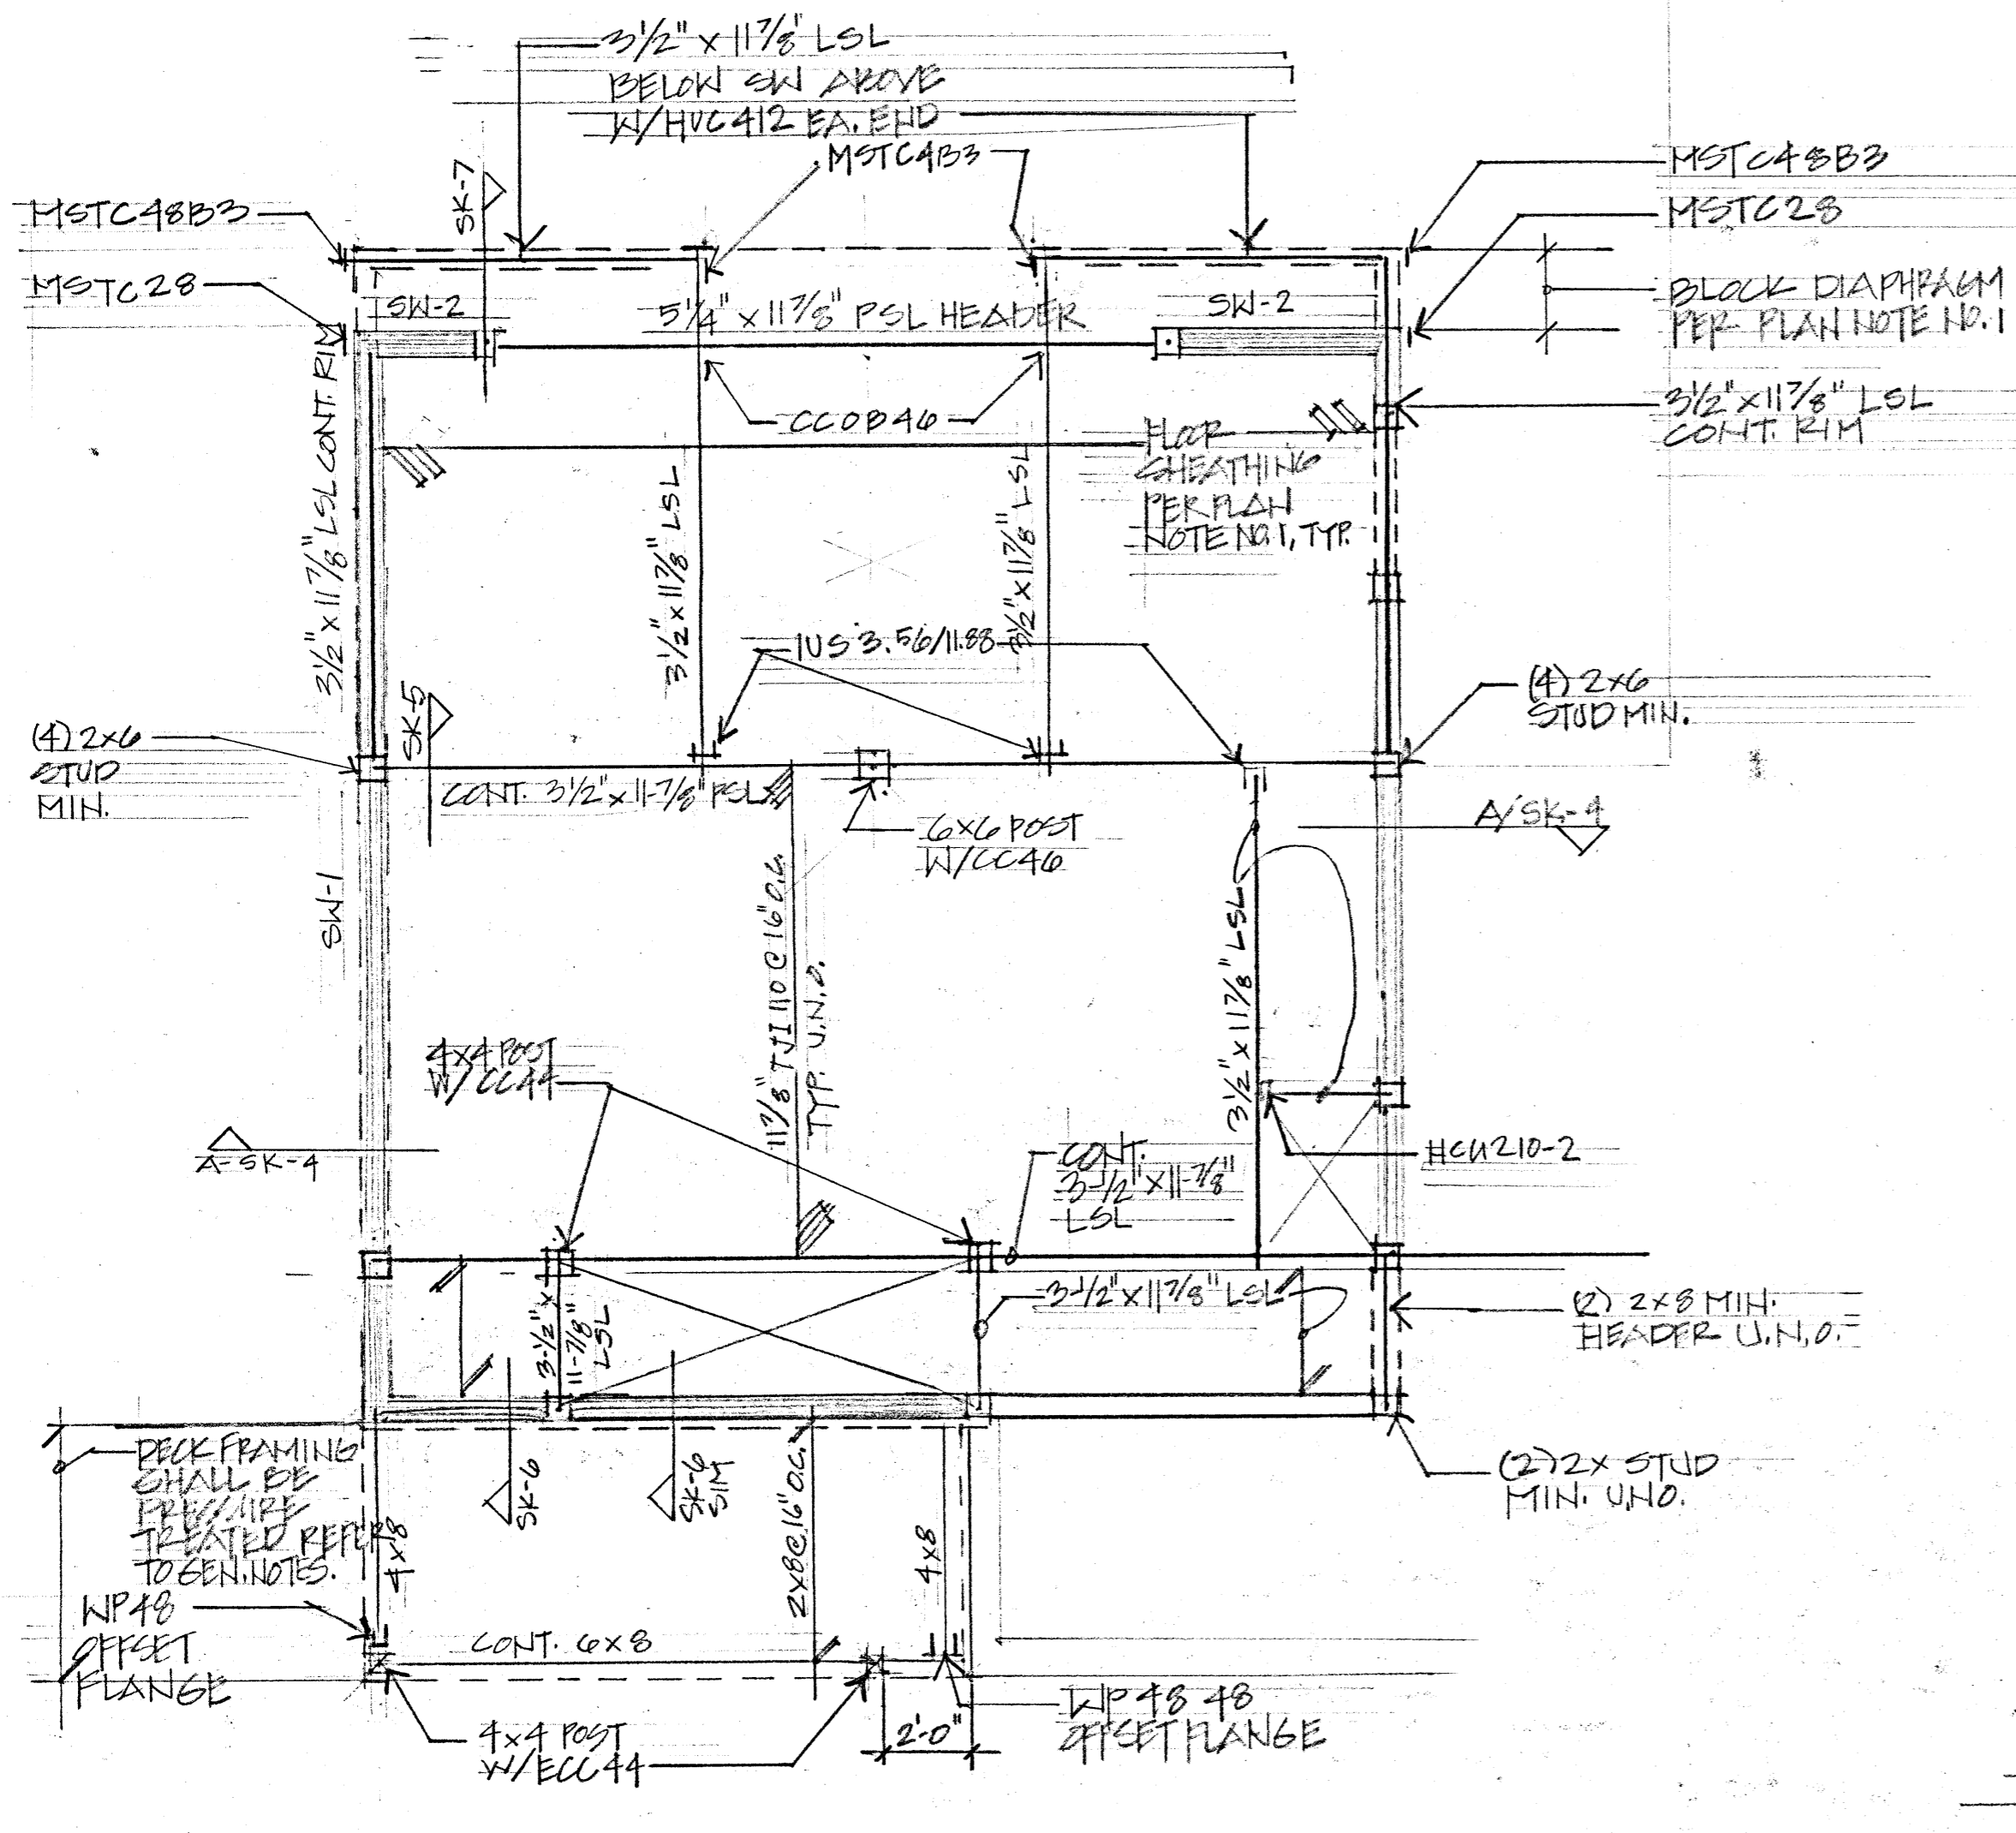 3½" x 11⅞" LSL
BELOW SW ABOVE
W/HUC412 EA. END
MSTC4B3
SK-7
MSTC48B3
MSTC28
MSTC48B3
MSTC28
BLOCK DIAPHRAGM
PER PLAN NOTE NO. 1
SW-2
5¼" x 11⅞" PSL HEADER
SW-2
3½" x 11⅞" LSL CONT. RIM
CCOB46
3½" x 11⅞" LSL
CONT. RIM
FLOOR
SHEATHING
PER PLAN
NOTE NO. 1, TYP.
3½" x 11⅞" LSL
3½" x 11⅞" LSL
IUS 3.56/11.88
(4) 2x6
STUD
MIN.
SK-5
(4) 2x6
STUD MIN.
CONT. 3½" x 11-⅞" PSL
6x6 POST
W/CC46
A/SK-4
SW-1
11⅞" TJI 110 @ 16" O.C.
TYP. U.N.O.
3½" x 11⅞" LSL
4x4 POST
W/CC44
A-SK-4
CONT.
3-½" x 11-⅞"
LSL
HCU210-2
3-½" x
11-⅞"
LSL
3-½" x 11⅞" LSL
(2) 2x8 MIN.
HEADER U.N.O.
DECK FRAMING
SHALL BE
PRESSURE
TREATED REFER
TO GEN. NOTES.
SK-6
SK-6
SIM
2x8@16" O.C.
4x8
4x8
(2) 2x STUD
MIN. U.N.O.
WP48
OFFSET
FLANGE
CONT. 6x8
4x4 POST
W/ECC44
2'-0"
WP 48 48
OFFSET FLANGE